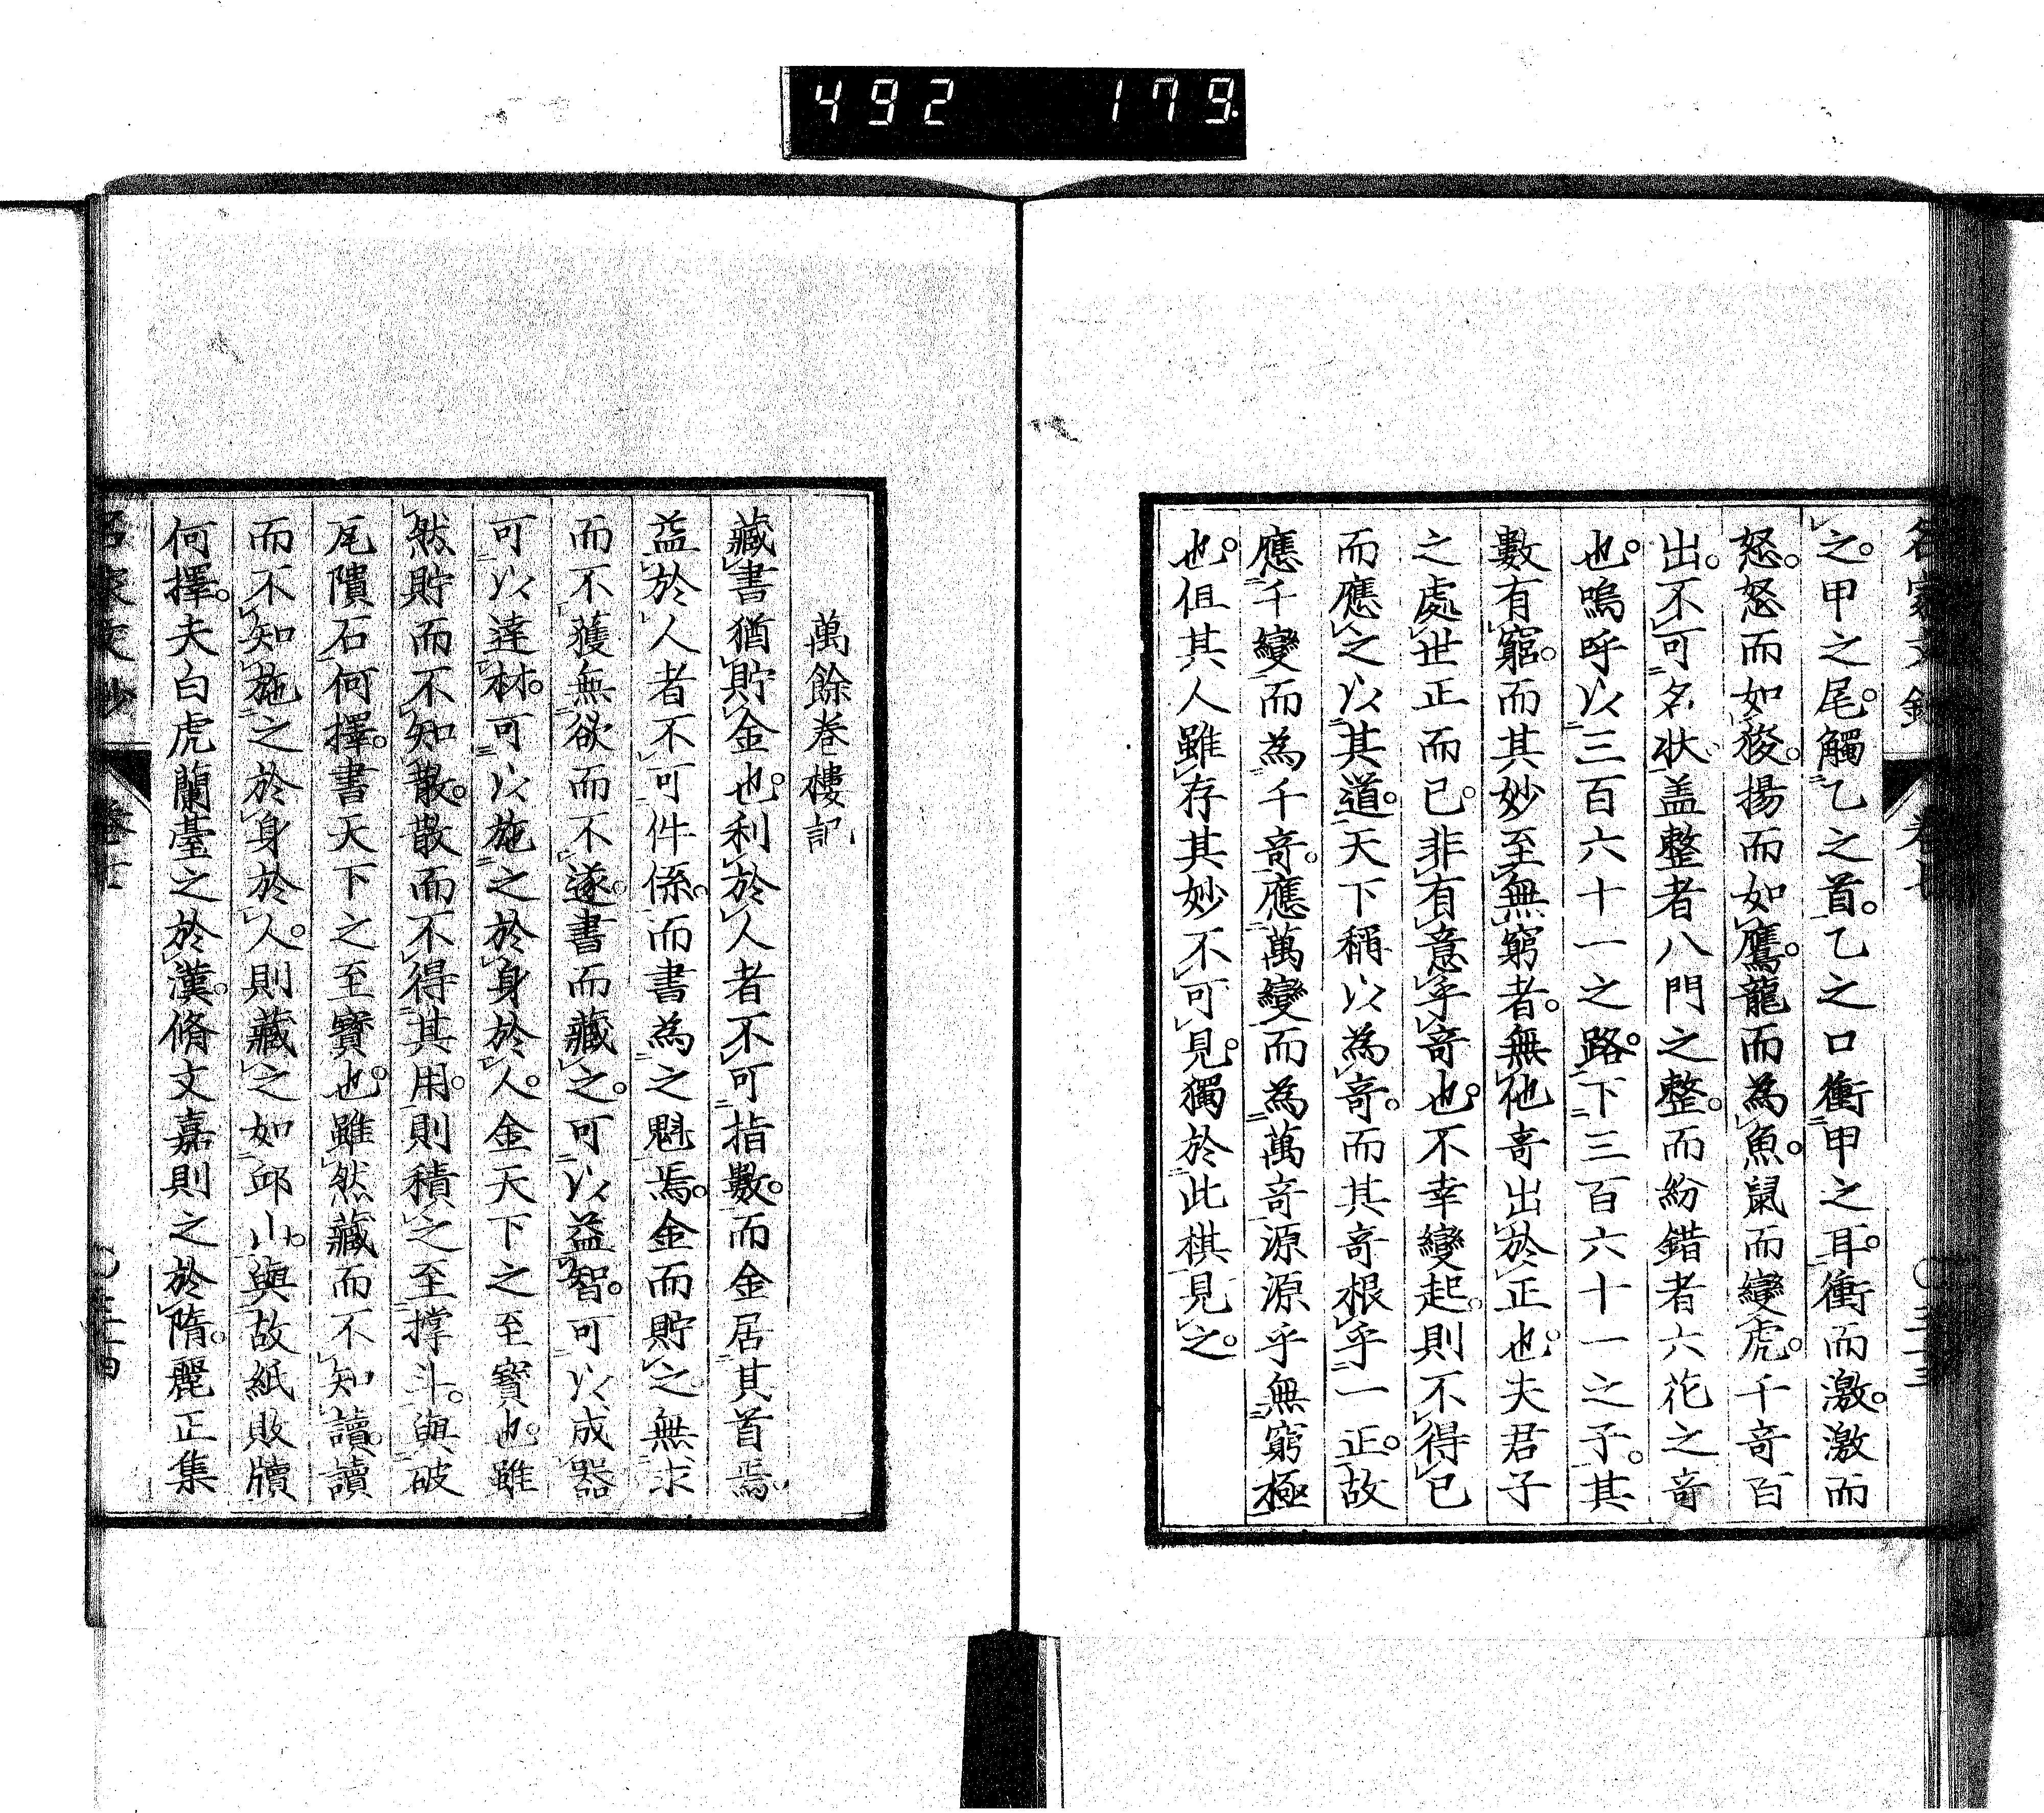 492 179
之。甲之尾。觸乙之首。乙之口衝甲之耳。衝而激。激而
怒。怒而如㺉。揚而如鷹。龍而為魚。鼠而變虎。千奇百
出。不可名狀。盖整者八門之整。而紛錯者六花之奇
也。嗚呼以三百六十一之路。下三百六十一之子。其
數有窮。而其妙至無窮者。無他奇出於正也。夫君子
之處世正而已。非有意乎奇也。不幸變起。則不得已
而應之以其道。天下稱以為奇。而其奇根乎一正。故
應千變而為千奇。應萬變而為萬奇源源乎無窮極
也。但其人雖存其妙不可見。獨於此棋見之。
萬餘卷樓記
藏書猶貯金也。利於人者不可指數。而金居其首焉。
益於人者不可件係。而書為之魁焉。金而貯之。無求
而不獲無欲而不遂。書而藏之。可以益智。可以成器
可以達材。可以施之於身於人。金天下之至寶也。雖
然貯而不知散。散而不得其用。則積之至撑斗。與破
瓦隤石何擇。書天下之至寶也。雖然藏而不知讀。讀
而不知施之於身於人。則藏之如邱山。與故紙敗牘
何擇。夫白虎蘭臺之於漢。脩文嘉則之於隋。麗正集